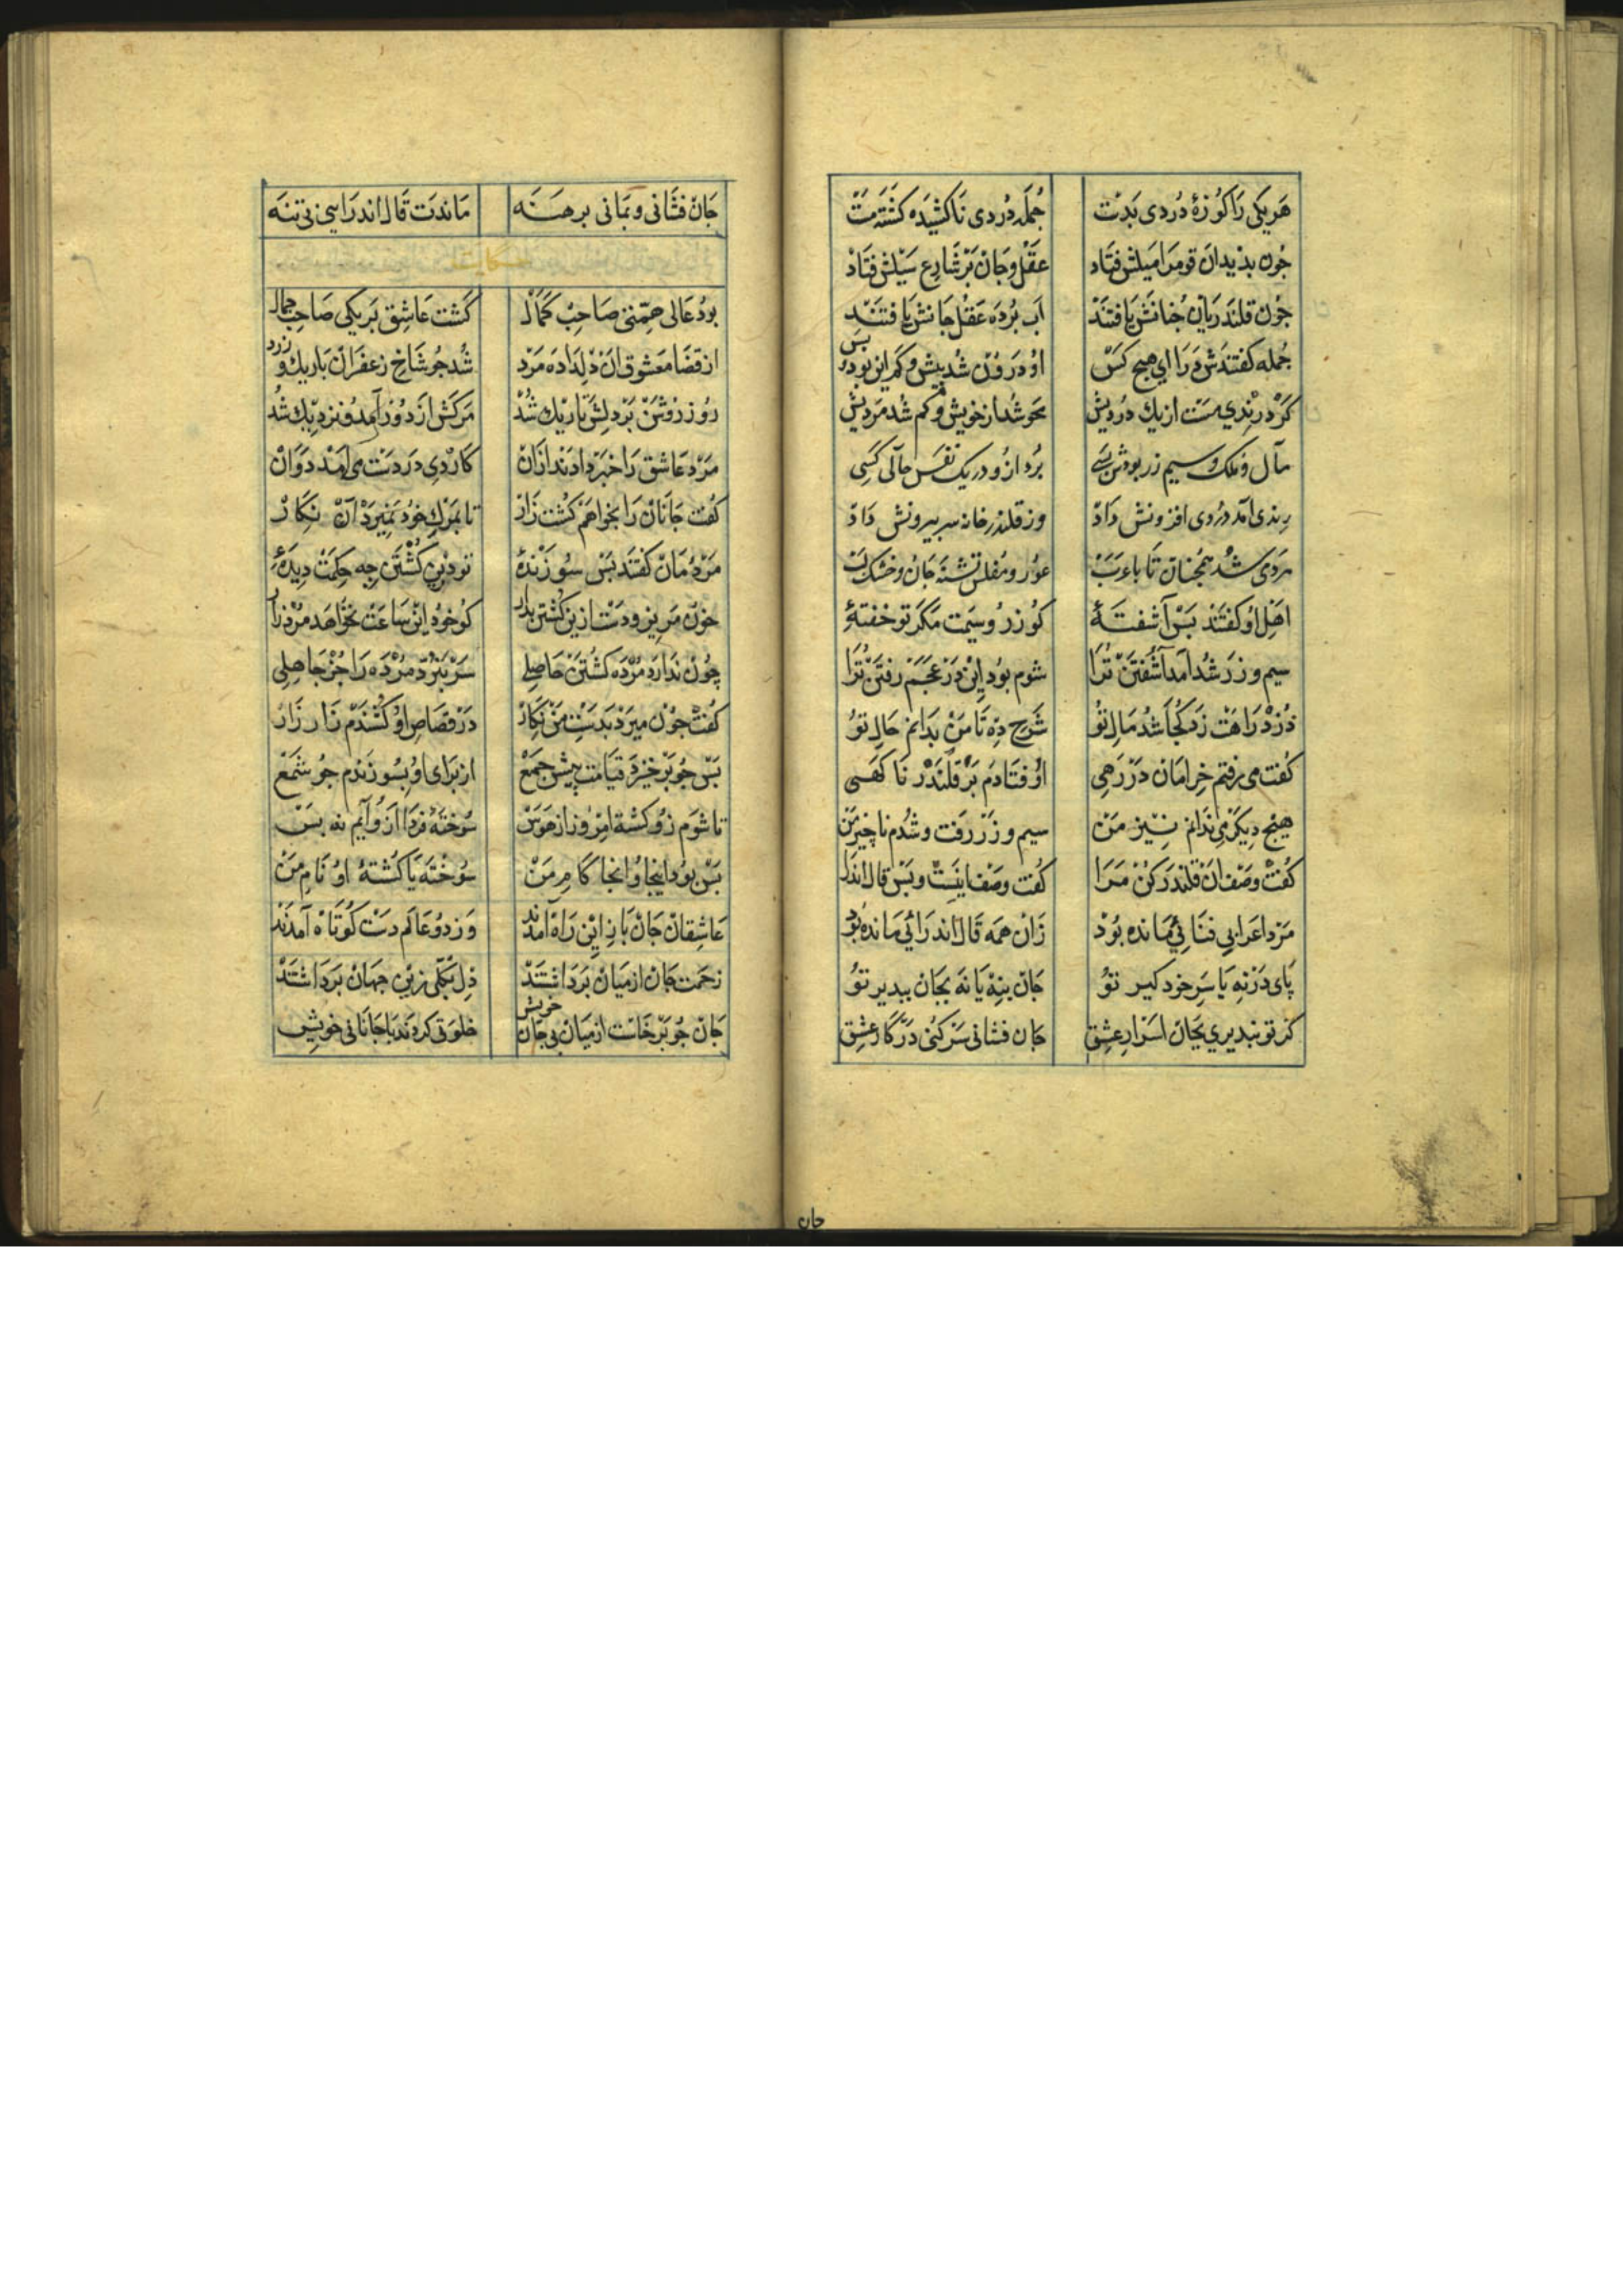 هَر یکی رَا کُوزهٔ دُردی بَدست جُمله دُردی نَا کشیَده کشته مَست
جُون بدید ان قوم رَا میلش فتاد عَقل وجَان بَر شَارع سَیلش فتَاذ
جُون قلندریان جُنانش یَافتند اب بُرده عَقل جَانش یافتند
جُمله کفتندش دَرَا ای هیج کس اوُ درون شد بیش وکم این بود بس
کرد رندی مست از یك دُردیش محو شُد از خویش وکم شد مَردیش
مال وملک وسیم زر بودش بسی بُرد ازو در یک نفس حالی کسی
رندی آمد دُردی افزونش دَاد وز قلندر خانه سر بیرونش داد
مردی شد همجنان تا باعرب عوُر ومُفلس تشنه جان وخشک لب
اهل او کفتند بس آشفتهٔ کو زر وسیمت مکر تو خفتهٔ
سیم وزر شد امد آشفتن ترا شوم بود این در عجم رفتن ترا
دزد راهت زد کجا شد مال تو شرح ده تا من بدانم حال تو
کفت می رفتم خرامان در رهی اوفتادم بر قلندر ناکهی
هیج دیکر می ندانم نیز من سیم وزر رفت وشدم ناچیز من
کفت وصف ان قلندر کن مرا کفت وصف اینست وبس قال اندرا
مرد اعرابی فنائی مانده بود زان همه قال اندرائی مانده بود
پای در نه یا سر خود کیر تو جان بنه یا نه بجان ببدیر تو
کر تو نبدیری بجان اسرار عشق جان فشانی سر کنی در کار عشق
جان
جان فشانی وبمانی برهنه ماندت قال اندرایی نی تنه
حکایت
بود عالی همتی صاحب کمال کشت عاشق بر یکی صاحب جمال
از قضا معشوق ان دلداده مرد شد جو شاخ زعفران باریك و زرد
روز روشن بر دلش تاریك شد مرکش از دور آمد ونزدیك شد
مرد عاشق را خبر دادند ازان کاردی در دست می امد دوان
کفت جانان را بخواهم کشت زار تا بمرك خود نمیرد آن نکار
مردمان کفتند بس سوزندهٔ تو درین کشتن جه حکمت دیدهٔ
خون مریز ودست ازین کشتن بدار کو خود این ساعت بخواهد مرد زار
چون ندارد مرده کشتن حاصلی سر نبرد مرده را جز جاهلی
کفت جون میرد بدست من نکار در قصاص او کشندم زار زار
بس جو برخیزد قیامت پیش جمع از برای او بسوزندم جو شمع
تا شوم زو کشته امروز از هوس سوخته فردا ازو آیم نه بس
بس بود اینجا وانجا کام من سوخته یا کشتهٔ او نام من
عاشقان جان باز این راه آمدند وز دو عالم دست کوتاه آمدند
زحمت جان از میان برداشتند دل بکلی زین جهان برداشتند
جان جو برخاست از میان بی جان خویش خلوتی کردند با جانانی خویش